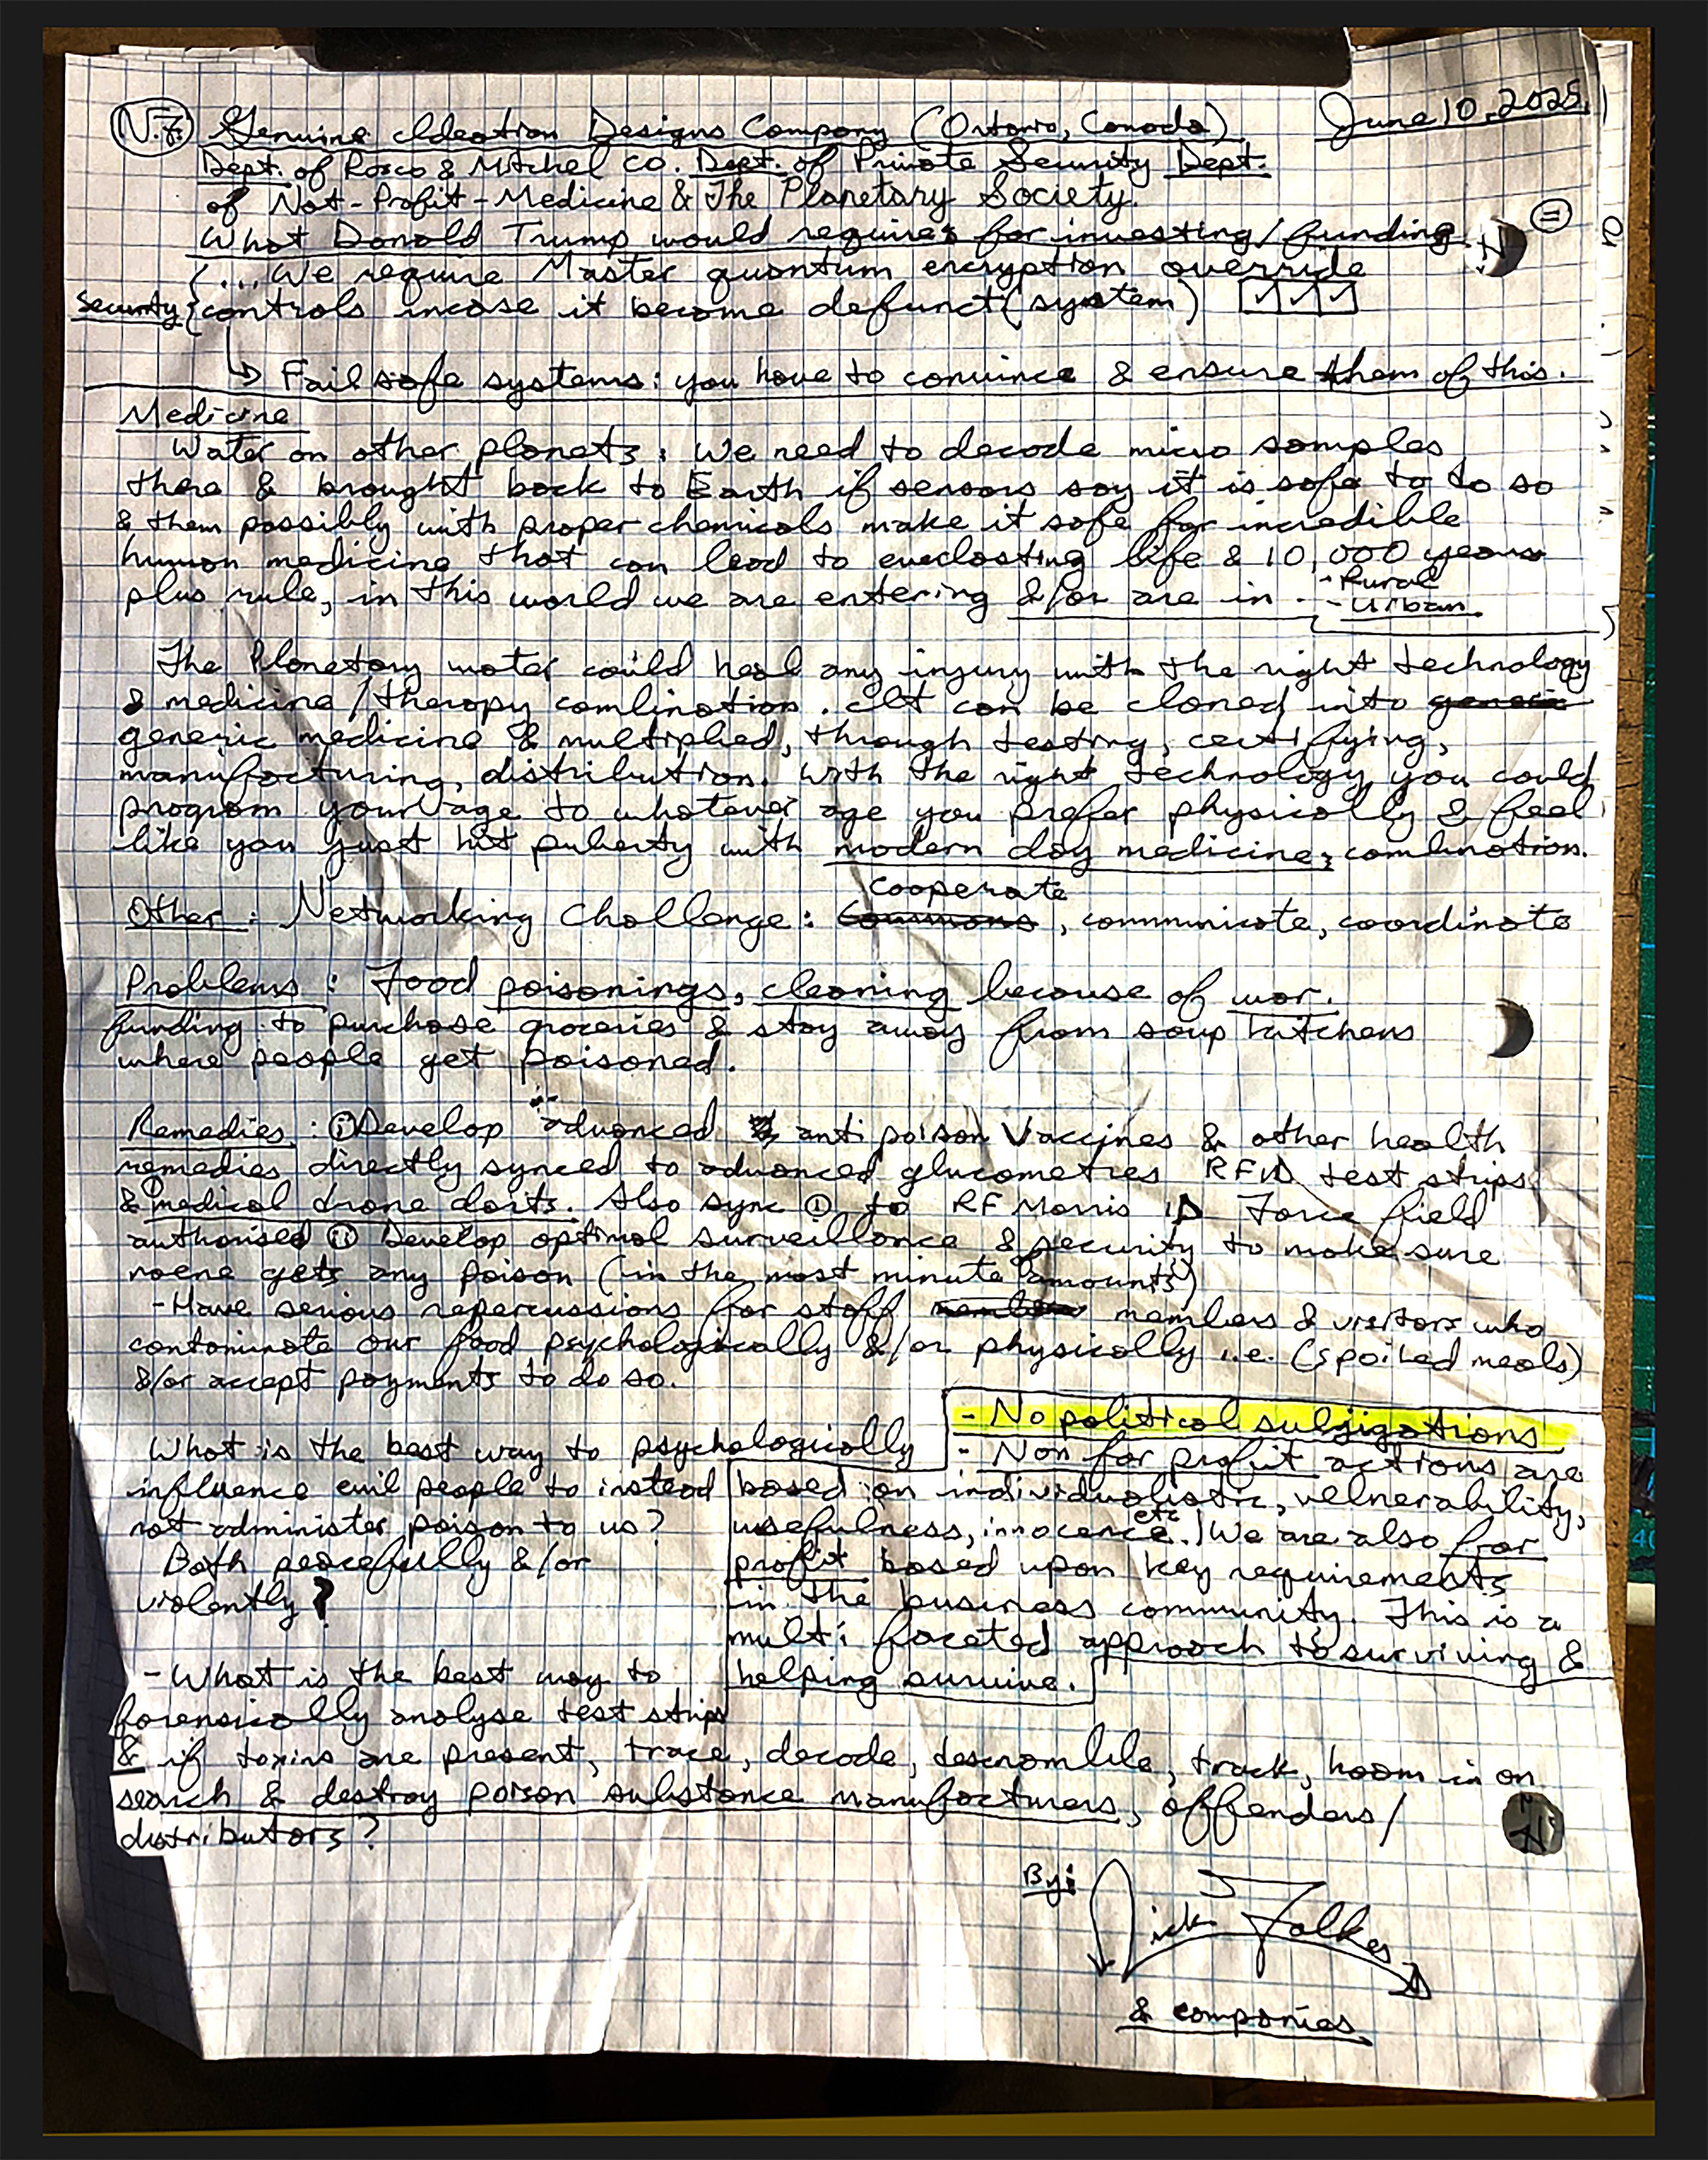 N.F. Genuine Ideation Designs Company (Ontario, Canada) June 10, 2025
Dept. of Rosco & Mitchel co. Dept. of Private Security Dept.
of Not-Profit-Medicine & The Planetary Society.
What Donald Trump would require: for investing/funding.
(...We require Master quantum encryption override
security { controls incase it become defunct (system) ✓ ✓ ✓
↳ Fail safe systems: you have to convince & ensure them of this.
Medicine
Water on other planets: We need to decode micro samples
there & brought back to Earth if sensors say it is safe to do so
& them possibly with proper chemicals make it safe for incredible
human medicine that can lead to everlasting life & 10,000 years
plus rule, in this world we are entering &/or are in - Rural
- Urban
The Planetary water could heal any injury with the right technology
& medicine/therapy combination. It can be cloned into generic
generic medicine & multiplied, through testing, certifying,
manufacturing, distribution. With the right technology you could
program your age to whatever age you prefer physically & feel
like you just hit puberty with modern day medicine; combination.
cooperate
Other: Networking Challenge: Commons, communicate, coordinate
Problems: Food poisonings, cleaning because of war.
funding to purchase groceries & stay away from soup kitchens
where people get poisoned.
Remedies: ① Develop advanced anti poison Vaccines & other health
remedies directly synced to advanced glucometres RFID test strips
& medical drone darts. Also sync ① to RF Morris ID Force field
authorised ② Develop optimal surveillance & security to make sure
noene gets any poison (in the most minute amounts)
- Have serious repercussions for staff members & visitors who
contaminate our food psychologically &/or physically i.e. (spoiled meals)
&/or accept payments to do so.
What is the best way to psychologically
influence evil people to instead
not administer poison to us?
Both peacefully &/or
violently?
- No political subjigations
- Non for profit actions are
based on individualistic, velnerability,
usefulness, innocence etc. We are also for
profit based upon key requirements
in the business community. This is a
multi faceted approach to surviving &
helping survive.
- What is the best way to
forensically analyse test strips
& if toxins are present, trace, decode, descramble, track, hoom in on
search & destroy poison substance manufacturers, offenders/
distributors?
By: Nick Folkes
& companies